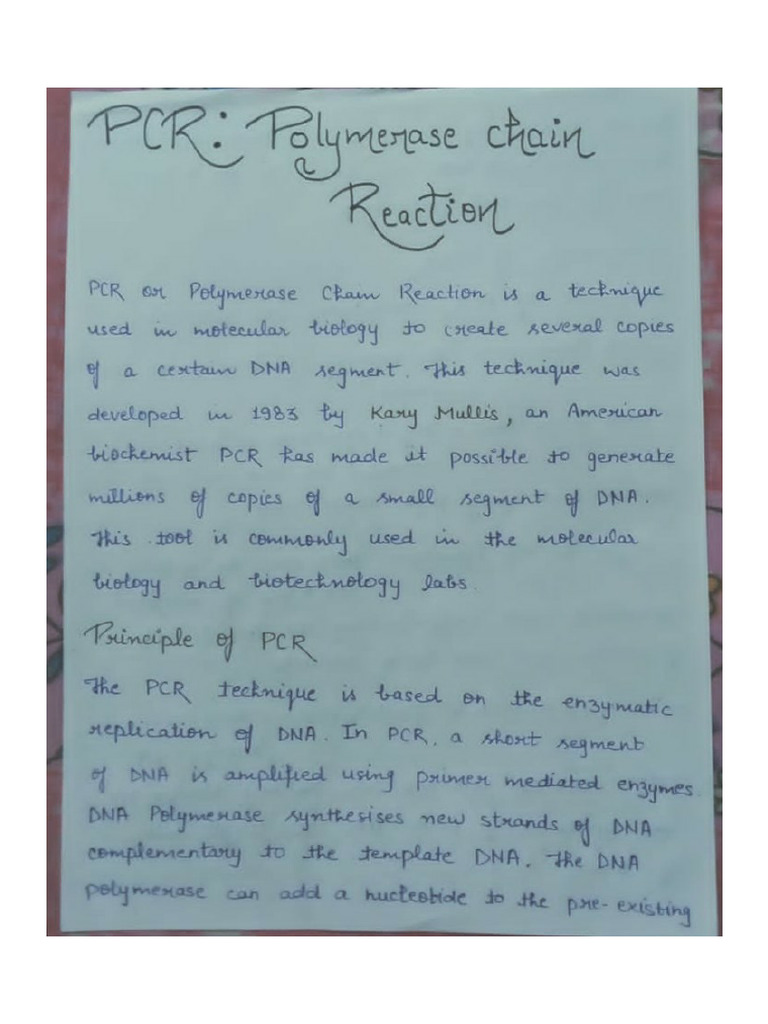 PCR: Polymerase chain
Reaction
PCR or Polymerase Chain Reaction is a technique
used in molecular biology to create several copies
of a certain DNA segment. This technique was
developed in 1983 by Kary Mullis, an American
biochemist PCR has made it possible to generate
millions of copies of a small segment of DNA.
This tool is commonly used in the molecular
biology and biotechnology labs.
Principle of PCR
The PCR technique is based on the enzymatic
replication of DNA. In PCR, a short segment
of DNA is amplified using primer mediated enzymes
DNA Polymerase synthesises new strands of DNA
complementary to the template DNA. The DNA
polymerase can add a nucleotide to the pre-existing